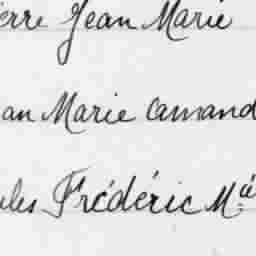 erre Jean Marie
an Marie Camand
ules Frédéric Mie